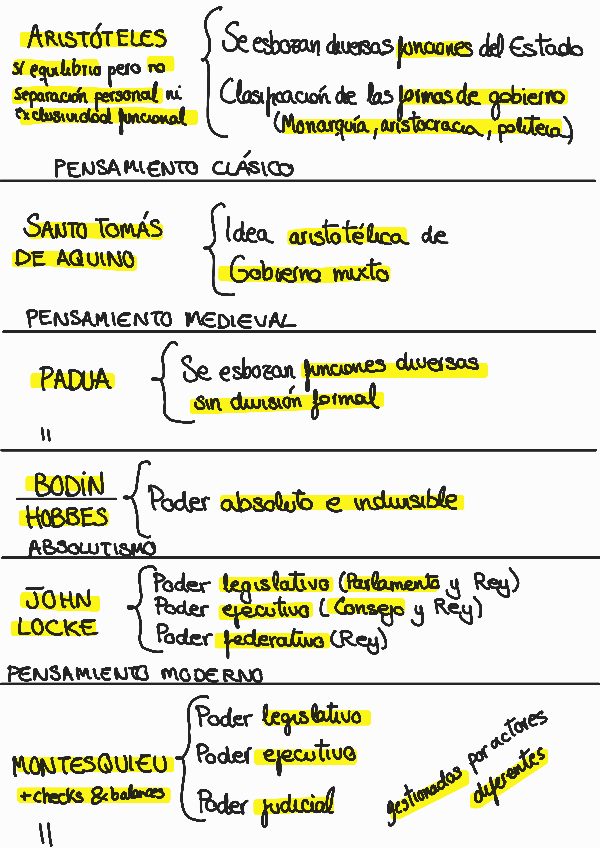 ARISTÓTELES
sí equilibrio pero no
separación personal ni
exclusividad funcional
Se esbozan diversas funciones del Estado
Clasificación de las formas de gobierno
(Monarquía, aristocracia, politeia)
PENSAMIENTO CLÁSICO
SANTO TOMÁS
DE AQUINO
Idea aristotélica de
Gobierno mixto
PENSAMIENTO MEDIEVAL
PADUA
Se esbozan funciones diversas
sin división formal
"
BODIN
HOBBES
Poder absoluto e indivisible
ABSOLUTISMO
JOHN
LOCKE
Poder legislativo (Parlamento y Rey)
Poder ejecutivo (Consejo y Rey)
Poder federativo (Rey)
PENSAMIENTO MODERNO
MONTESQUIEU
+ checks & balances
Poder legislativo
Poder ejecutivo
Poder judicial
gestionados por actores
diferentes
"